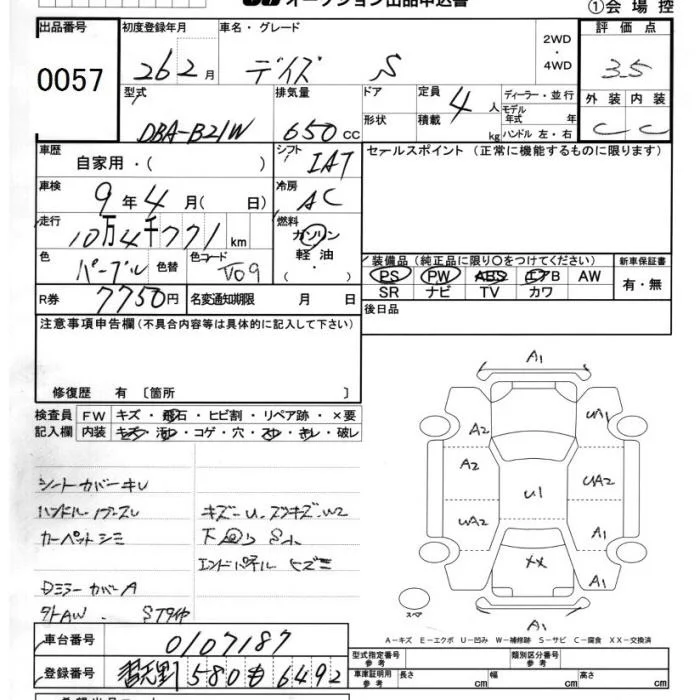 オークション出品申込書
①会場控
出品番号 初度登録年月 車名・グレード 2WD・4WD 評価点
0057 26 2月 デイズ S 3.5
型式 排気量 ドア 定員 4人 ディーラー・並行 外装 内装
モデル年式 年
DBA-B21W 650cc 形状 積載 kg ハンドル 左・右 C C
車歴 自家用・( ) シフト IAT セールスポイント (正常に機能するものに限ります)
車検 9年4月( 日) 冷房 AC
走行 10万4千771km 燃料 ガソリン 軽油 ( ・ )
色 パープル 色替 色コード V09 装備品 (純正品に限り○をつけてください) 新車保証書
PS PW ABS エアB AW 有・無
R券 7750円 名変通知期限 月 日 SR ナビ TV カワ
注意事項申告欄 (不具合内容等は具体的に記入して下さい) 後日品
修復歴 有 〔箇所 〕
検査員 FW キズ・飛石・ヒビ割・リペア跡・×要
記入欄 内装 キズ・汚れ・コゲ・穴・スレ・キレ・破レ
シートカバーキレ
ハンドル・ノブスレ キズ・U.スリキズ.W2
カーペットシミ 下回りS小
エンドパネルヒズミ
Dミラーカバー A
外AW.
A1
A2 UA1
A2 U1 UA2
UA2 A1
XX A1
スペア A1
A-キズ E-エクボ U-凹み W-補修跡 S-サビ C-腐食 XX-交換済
車台番号 0107187 型式指定番号 参考 類別区分番号 参考
登録番号 580 も 6492 車庫証明用 参考 長さ cm 幅 cm 高さ cm